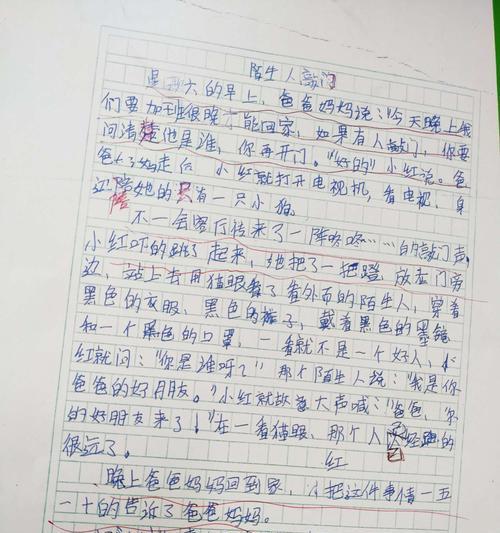 陌生人敲门
星期六的早上，爸爸妈妈说：“今天晚上我
们要加班很晚才能回家，如果有人敲门，你要
问清楚他是谁，你再开门。”“好的”小红说。爸
爸妈妈走后，小红就打开电视机，看电视，身
边陪她的只有一只小狗。
不一会儿传来了一阵咚咚……的敲门声，
小红吓的跳了起来，她把了一把蹬放在门旁
边，站上去用猫眼看了看外面的陌生人，穿着
黑色的衣服，黑色的裤子，戴着黑色的墨镜
和一个黑色的口罩，一看就不是一个好人，小
红就问：“你是谁呀？”那个陌生人说：“我是你
爸爸的好朋友。”小红就故意大声喊：“爸爸，你
的好朋友来了！”在一看猫眼，那个人已经跑的
很远了。
红
晚上爸爸妈妈回到家，小把这件事情一五
一十的告诉了爸爸妈妈。